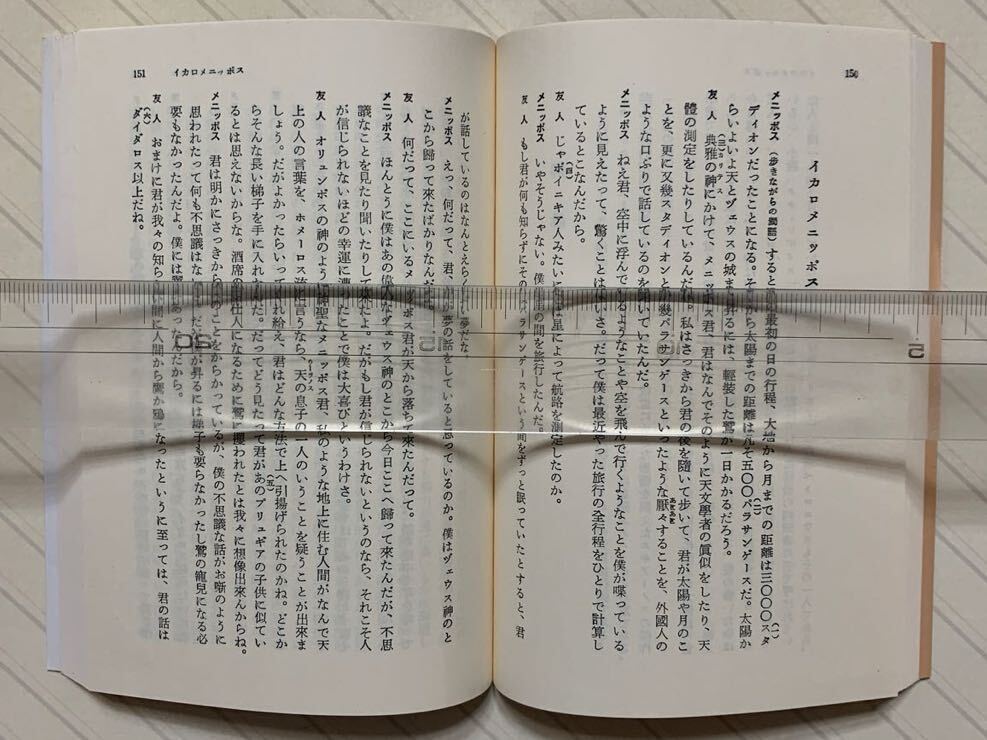 150
イカロメニッポス
メニッポス (歩きながらの獨語) すると 最初の日の行程、大地から月までの距離は三〇〇〇スタ(一)
ディオンだったことになる。そ から太陽までの距離は凡そ五〇〇パラサンゲースだ。太陽か(二)
らいよいよ天とヴェウスの城ま 昇るには、輕装した鷲 一日かかるだろう。
友 人 典雅の神にかけて、メニッポス君、君はなんでそのように天文學者の眞似をしたり、天(三)カリテス
體の測定をしたりしているんだ 。私はさっきから君の後を隨いて歩いて、君が太陽や月のこ
とを、更に又幾スタディオンと 幾パラサンゲースといったような厭々することを、外國人の
ような口ぶりで話しているのを 聞いていたんだ。
メニッポス ねえ君、空中に浮んでいるようなことや空を飛んで行くようなことを僕が喋っている
ように見えたって、驚くことはないさ。だって僕は最近やった旅行の全行程をひとりで計算し
ているとこなんだから。
友 人 じゃポイニキア人みたいに 星によって航路を測定したのか。(四)
メニッポス いやそうじゃない。僕 星の間を旅行したんだ。
友 人 もし君が何も知らずにその パラサンゲースという間をずっと眠っていたとすると、君
151
イカロメニッポス
が話しているのはなんとえらく い夢だな
メニッポス えっ、何だって、君、 夢の話をしていると思っているのか。僕はヴェウス神のと
こから歸って來たばかりなんだ
友 人 何だって、ここにいるメニッポス君が天から落ちて來たんだって。
メニッポス ほんとうに僕はあの偉 なヴェウス神のとこから今日ここへ歸って來たんだが、不思
議なことを見たり聞いたりして來たよ。だがもし君が信じられないというのなら、それこそ人
が信じられないほどの幸運に遭ったことで僕は大喜びというわけさ。
友 人 オリュンポスの神のように神聖なメニッポス君、私のような地上に住む人間がなんで天
上の人の言葉を、ホメーロス 言うなら、天の息子の一人のいうことを疑うことが出來ま
しょう。だがよかったらいって れ給え、君はどんな方法で上へ引揚げられたのかね。どこか
らそんな長い梯子を手に入れ だ。だってどう見たって君があのプリュギアの子供に似てい(五)
るとは思えないからな。酒席の 仕人になるために鷲に攫われたとは我々に想像出來んからね。
メニッポス 君は明かにさっきから ことをからかっているが、僕の不思議な話がお噺のように
思われたって何も不思議はな だ 僕が昇るには梯子も要らなかったし鷲の寵兒になる必
要もなかったんだよ。僕には翼 あったんだから。
友 人 おまけに君が我々の知ら い間に人間から鷹か鴉になったというに至っては、君の話は
ダイダロス以上だね。(六)
20
15
5